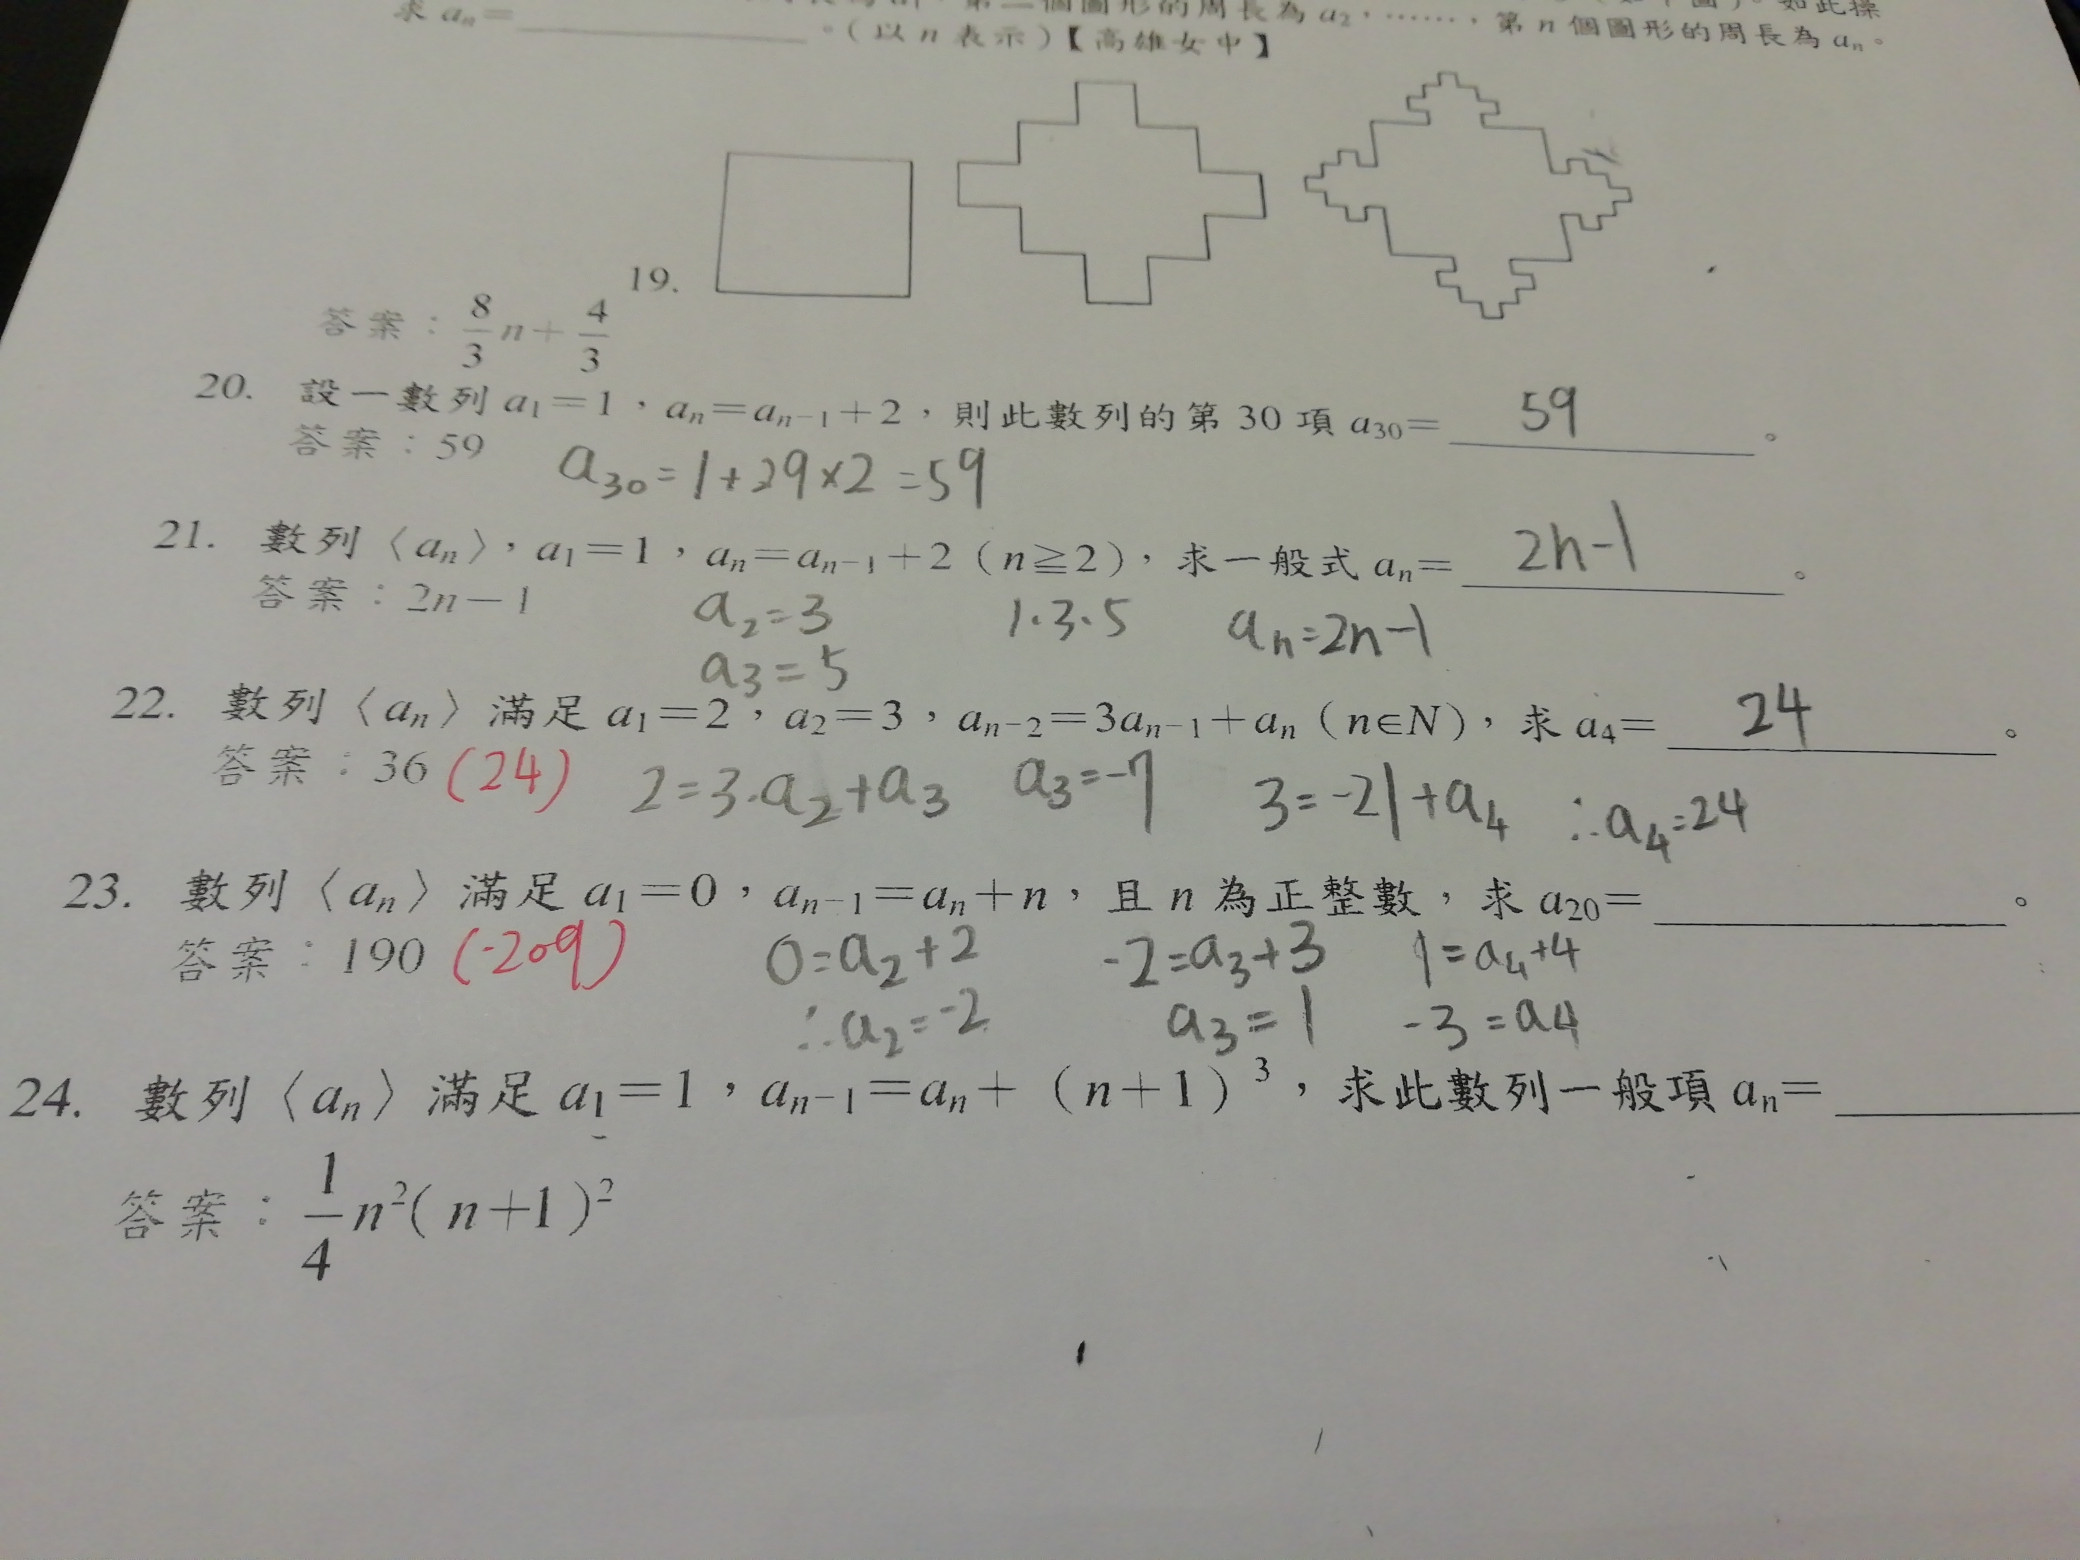 個圖形的周長為 a₂,……,第 n 個圖形的周長為 aₙ。如此操
求 aₙ＝＿＿＿＿。(以 n 表示)【高雄女中】
19.
答案：8/3 n＋4/3
20. 設一數列 a₁＝1，aₙ＝aₙ₋₁＋2，則此數列的第 30 項 a₃₀＝ 59 。
答案：59
a₃₀=1+29×2=59
21. 數列〈aₙ〉，a₁＝1，aₙ＝aₙ₋₁＋2（n≧2），求一般式 aₙ＝ 2n-1 。
答案：2n－1
a₂=3 1.3.5 aₙ=2n-1
a₃=5
22. 數列〈aₙ〉滿足 a₁＝2，a₂＝3，aₙ₋₂＝3aₙ₋₁＋aₙ（n∈N），求 a₄＝ 24 。
答案：36 (24)
2=3.a₂+a₃ a₃=-7 3=-21+a₄ ∴a₄=24
23. 數列〈aₙ〉滿足 a₁＝0，aₙ₋₁＝aₙ＋n，且 n 為正整數，求 a₂₀＝＿＿＿＿。
答案：190 (-209)
0=a₂+2 -2=a₃+3 1=a₄+4
∴a₂=-2 a₃=1 -3=a4
24. 數列〈aₙ〉滿足 a₁＝1，aₙ₋₁＝aₙ＋（n＋1）³，求此數列一般項 aₙ＝＿＿＿＿
答案：1/4 n²(n＋1)²